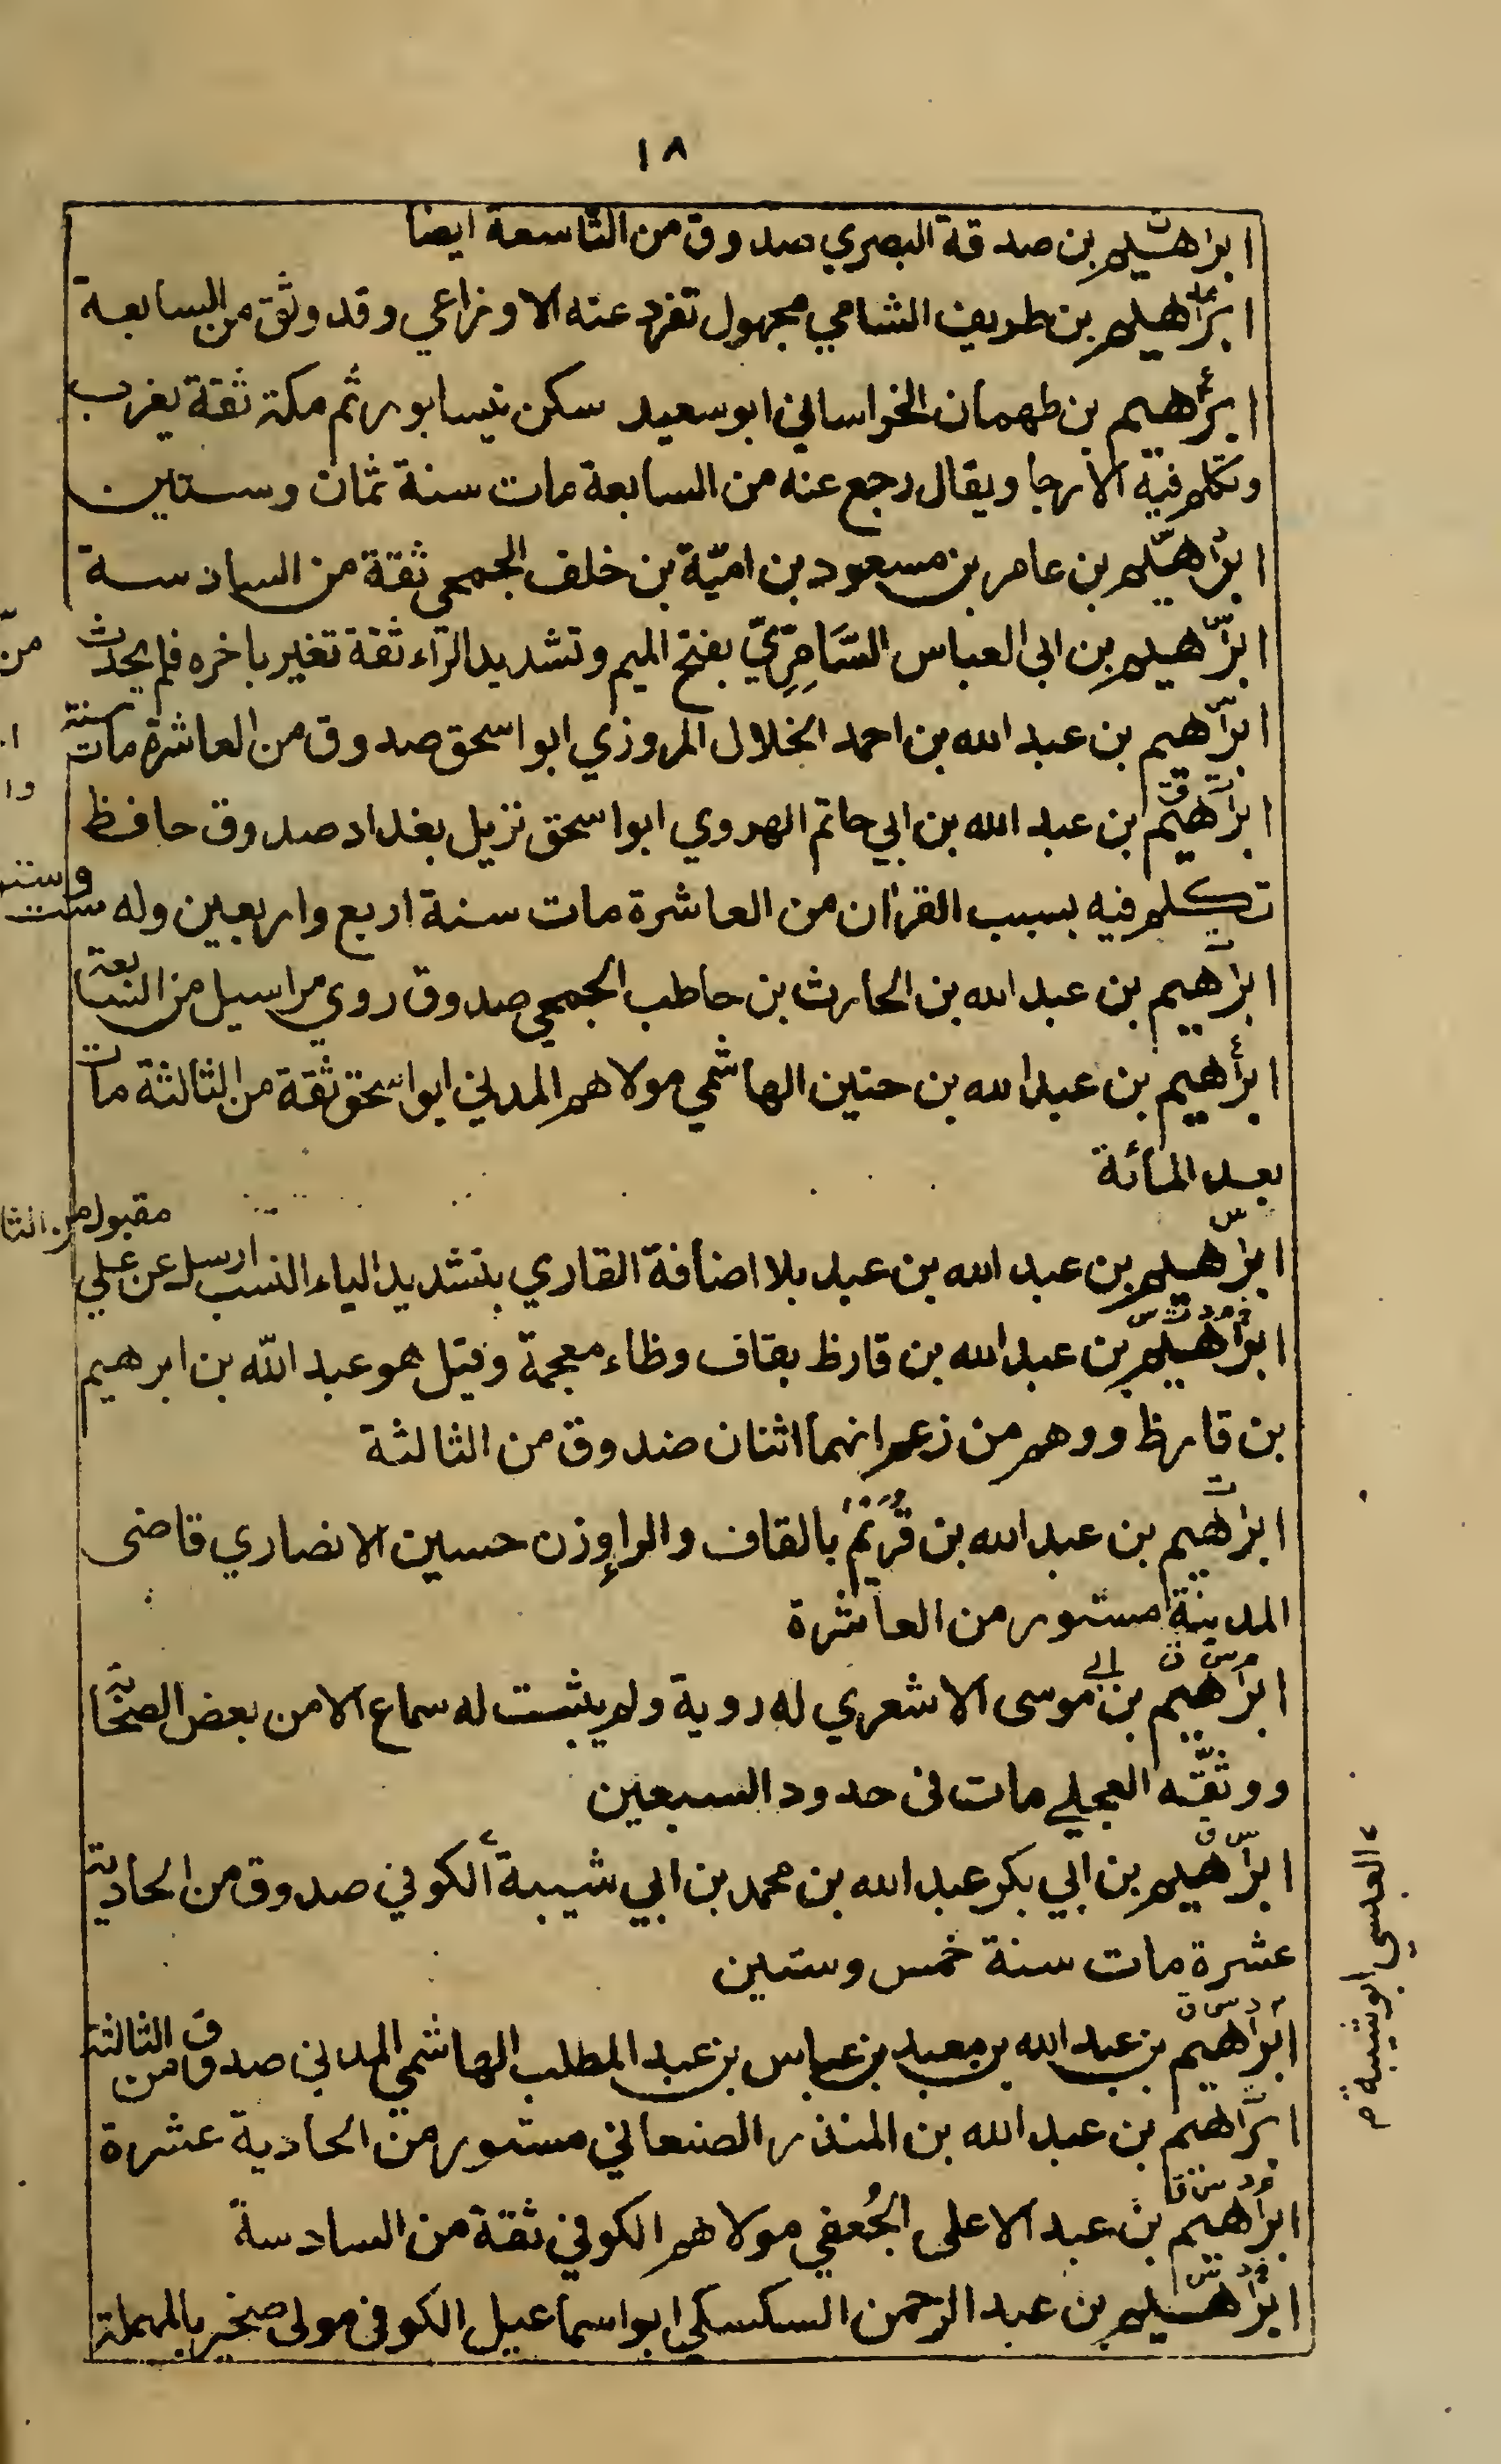 ١٨
ابراهيم بن صدقة البصري صدوق من التاسعة ايضا
ابراهيم بن طريف الشامي مجهول تفرد عنه الاوزاعي وقد وثق من السابعة
ابراهيم بن طهمان الخراساني ابو سعيد سكن نيسابور ثم مكة ثقة يغرب
وتكلم فيه الارجا ويقال رجع عنه من السابعة مات سنة ثمان وستين
ابراهيم بن عامر بن مسعود بن اميّة بن خلف الجمحي ثقة من السادسة
ابراهيم بن ابى العباس السَّامِرِّيّ بفتح الميم وتشديد الراء ثقة تغير باخره فلم يحدث
ابراهيم بن عبد الله بن احمد الخلال المروزي ابو اسحق صدوق من العاشرة مات سنة
ابراهيم بن عبد الله بن ابي حاتم الهروي ابو اسحق نزيل بغداد صدوق حافظ
تكلم فيه بسبب القرآن من العاشرة مات سنة اربع واربعين وله ست
ابراهيم بن عبد الله بن الحارث بن حاطب الجمحي صدوق روي مراسيل من السابعة
ابراهيم بن عبد الله بن حنين الهاشمي مولاهم المدني ابو اسحق ثقة من الثالثة مات
بعد المائة
ابراهيم بن عبد الله بن عبد بلا اضافة القاري بتشديد الياء النسب ارسل عن علي
مقبول من
ابراهيم بن عبد الله بن قارظ بقاف وظاء معجمة وقيل هو عبد الله بن ابرهيم
بن قارظ ووهم من زعم انهما اثنان صدوق من الثالثة
ابراهيم بن عبد الله بن قُرَيْم بالقاف والرا وزن حسين الانصاري قاضى
المدينة مستور من العاشرة
ابراهيم بن ابي موسى الاشعري له روية ولم يثبت له سماع الا من بعض الصحابة
ووثقه العجلي مات فى حدود السبعين
ابراهيم بن ابي بكر عبد الله بن محمد بن ابي شيبة الكوفي صدوق من الحادية
عشرة مات سنة خمس وستين
ابراهيم بن عبد الله بن معبد بن عباس بن عبد المطلب الهاشمي المدني صدوق من الثالثة
ابراهيم بن عبد الله بن المنذر الصنعاني مستور من الحادية عشرة
ابراهيم بن عبد الاعلى الجُعفي مولاهم الكوفي ثقة من السادسة
ابراهيم بن عبد الرحمن السكسكي ابو اسماعيل الكوفي مولى صخير بالمهملة
العبسي ابو شيبة